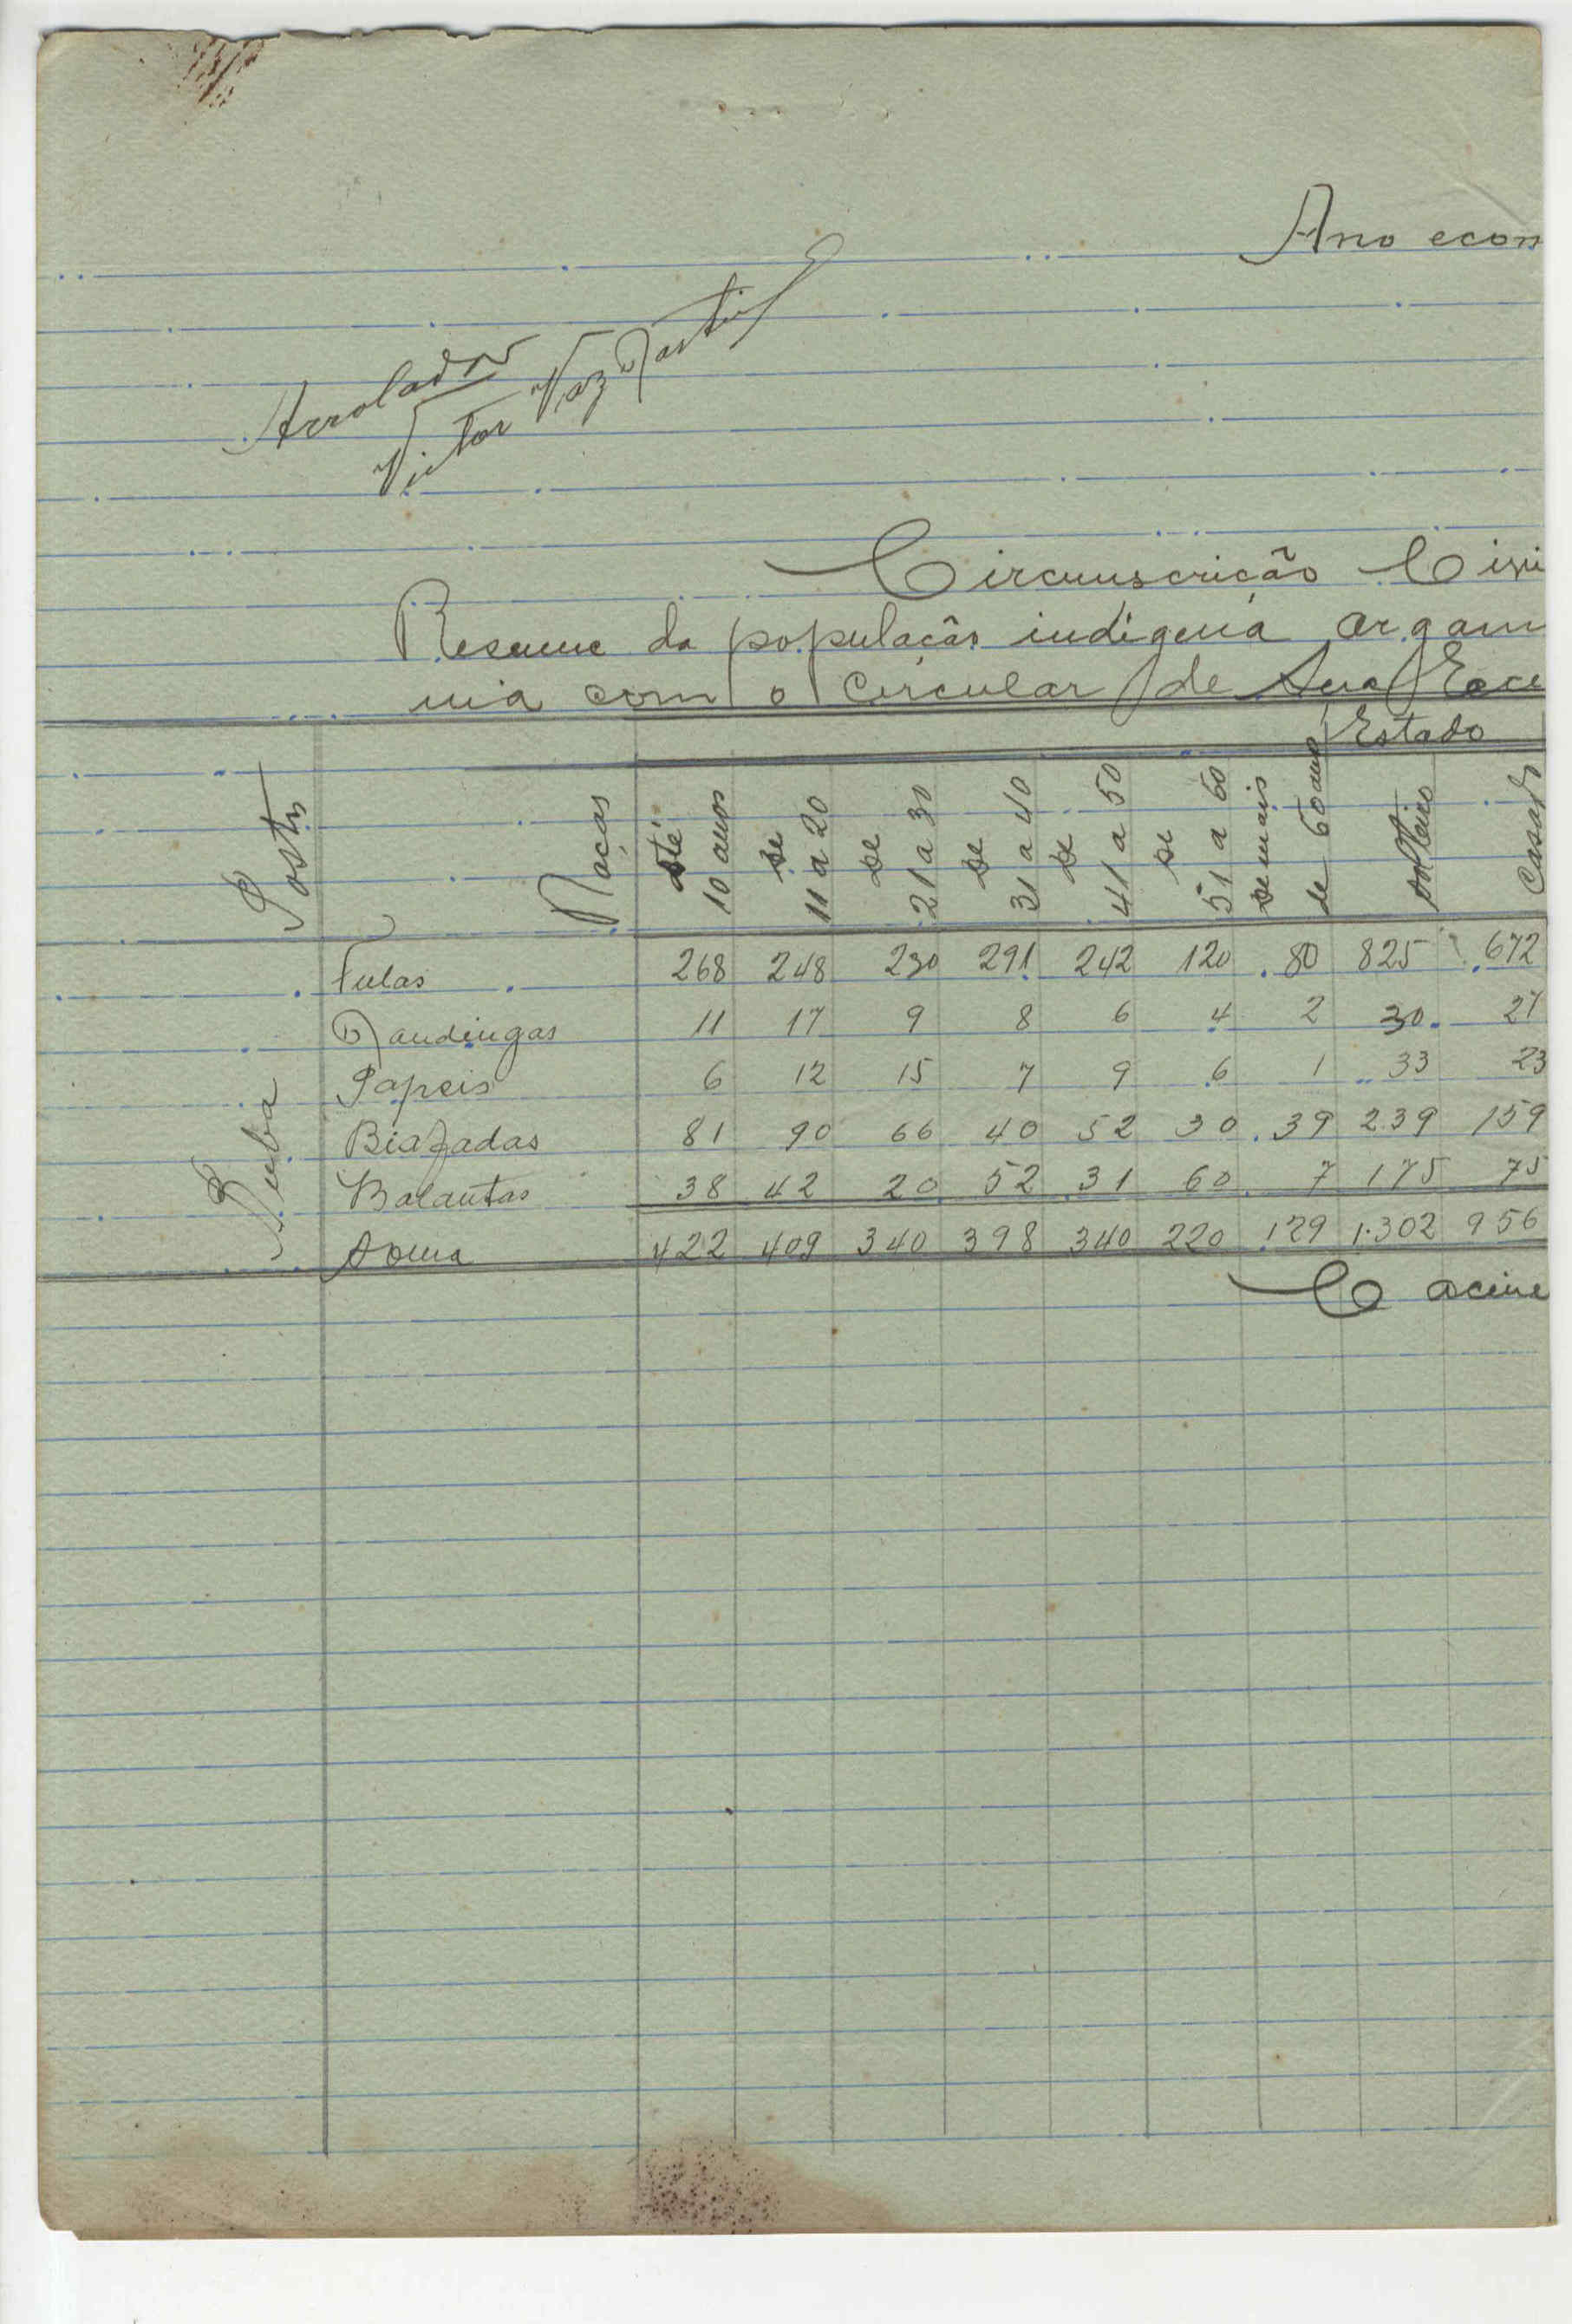 Ano econ
Arrolador
Victor Vaz Martins
Circunscrição Civi
Resumo da população indigena organi
nia com o Circular de Sua Exce
Postos
Raças
até 10 anos
de 11 a 20
de 21 a 30
de 31 a 40
de 41 a 50
de 51 a 60
de mais de 60 anos
Estado
solteiro
Casado
Buba
Fulas 268 248 230 291 242 120 80 825 672
Mandingas 11 17 9 8 6 4 2 30 27
Papeis 6 12 15 7 9 6 1 33 23
Biafadas 81 90 66 40 52 30 39 239 159
Balantas 38 42 20 52 31 60 7 175 75
Soma 422 409 340 398 340 220 129 1.302 956